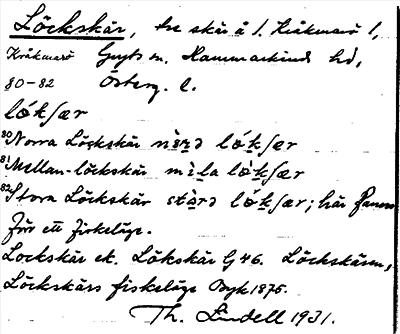 Löckskär, tre skär å 1. Kråkmarö 1,
Kråkmarö Gryts sn. Hammarkinds hd,
80-82 Österg. l.
lók∫ær
80 Norra Löckskär nèrə lók∫ær
81 Mellan-löckskär mìla lók∫ær
82 Stora Löckskär stòrə lók∫ær; här fanns
förr ett fiskeläge.
Lockskär ek. Lökskär G 46. Löckskären,
Löckskärs fiskeläge Byk 1875.
Th. Lindell 1931.